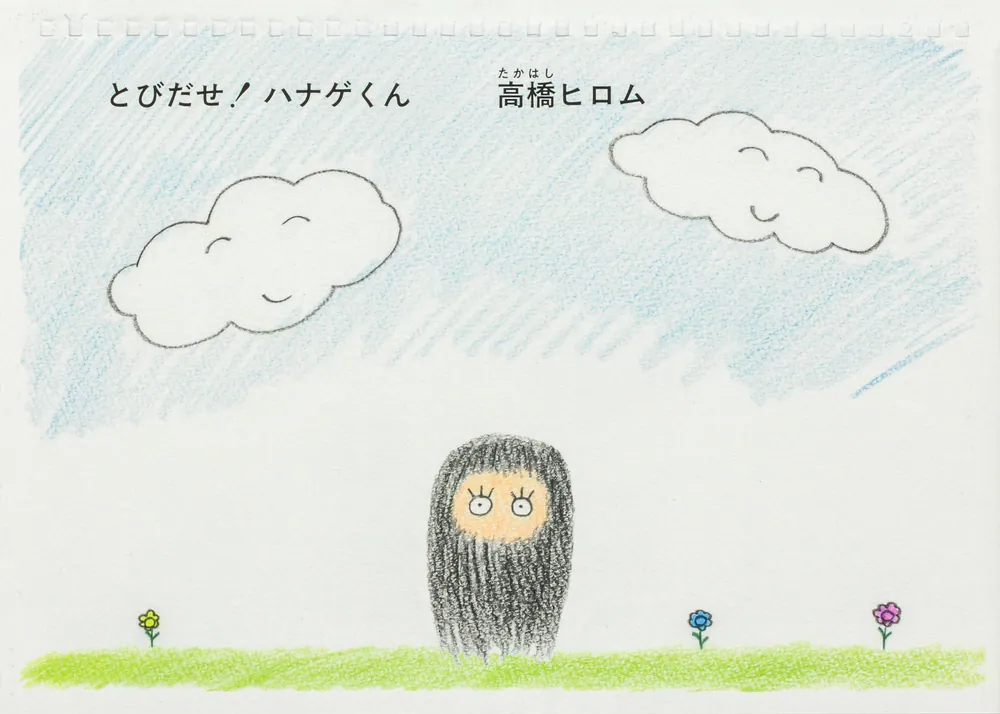 とびだせ！ ハナゲくん
高橋ヒロム
たかはし